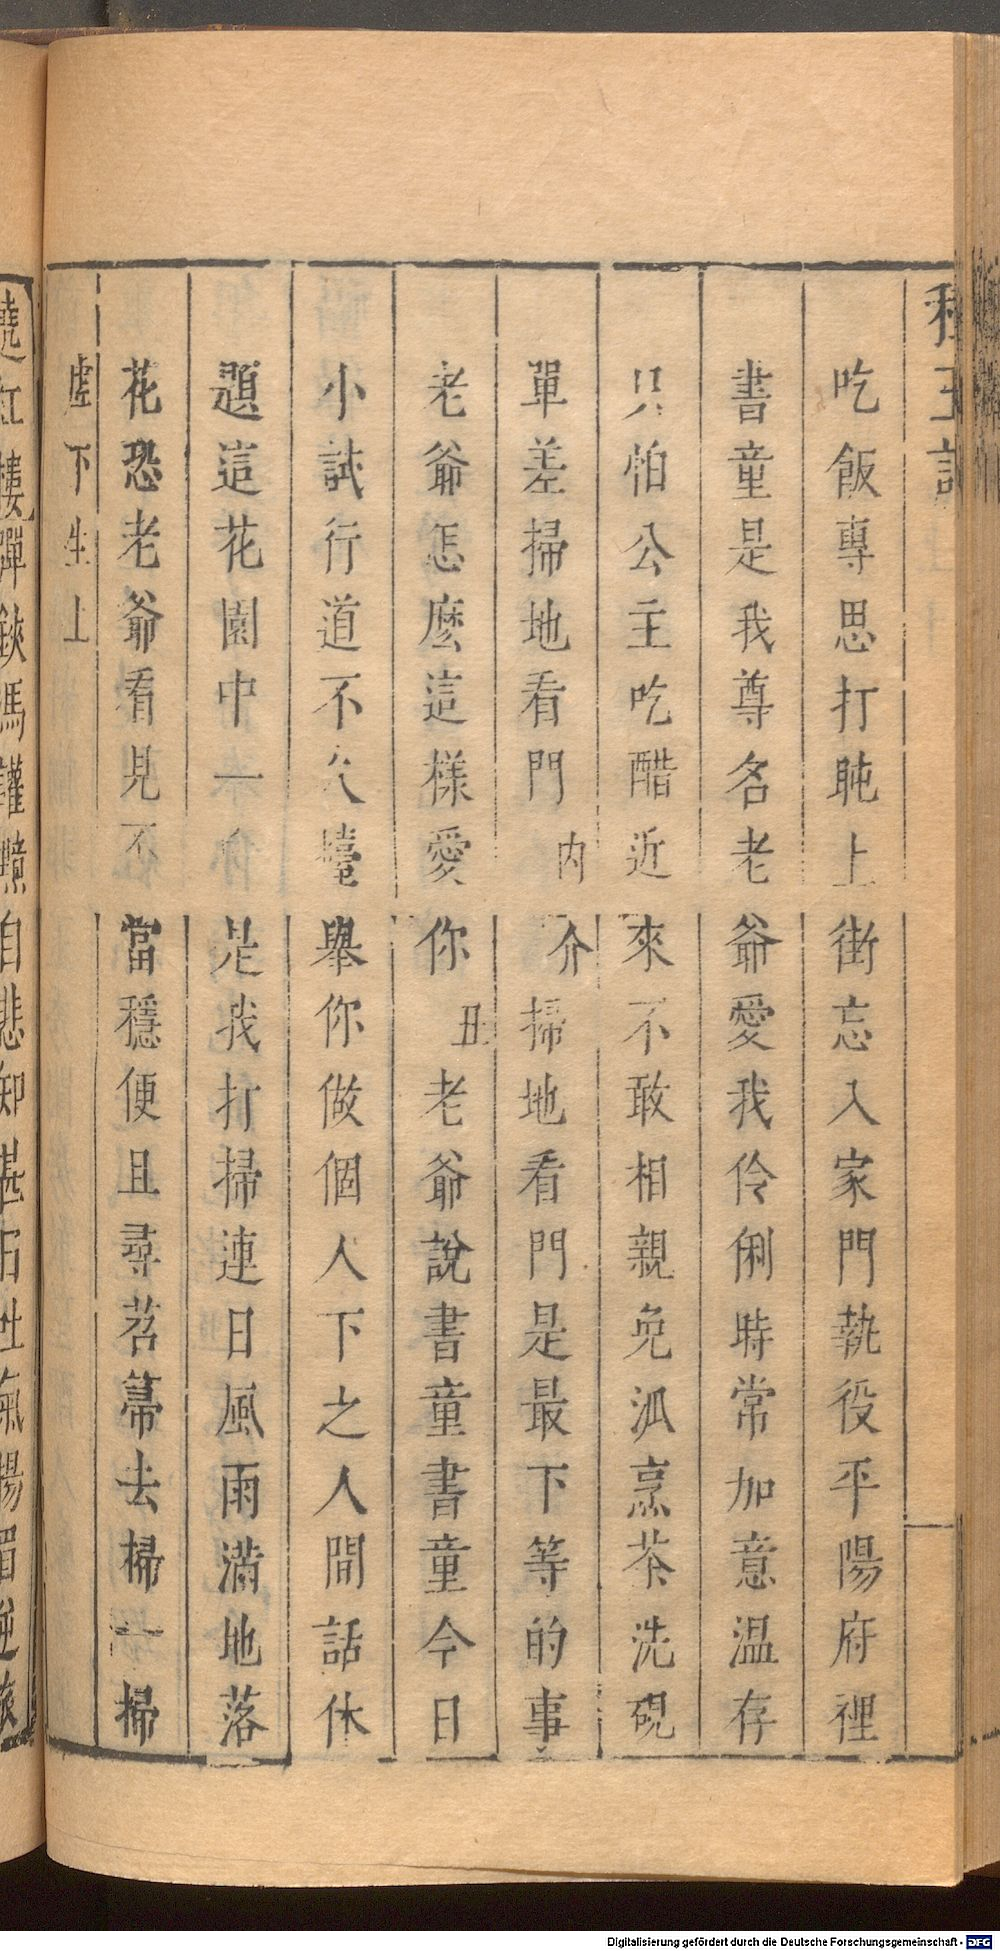 種玉記
吃飯專思打盹上街忘入家門執役平陽府裡
書童是我尊名老爺愛我伶俐時常加意温存
只怕公主吃醋近來不敢相親免派烹茶洗硯
單差掃地看門内介掃地看門是最下等的事
老爺怎麽這樣愛你丑老爺說書童書童今日
小試行道不久擡舉你做個人下之人閒話休
題這花園中一向是我打掃連日風雨滿地落
花恐老爺看見不當穩便且尋苕箒去掃一掃
虛下生上
遶紅樓彈鋏馮讙黯自悲知甚日吐氣揚眉逆旅
Digitalisierung gefördert durch die Deutsche Forschungsgemeinschaft - DFG